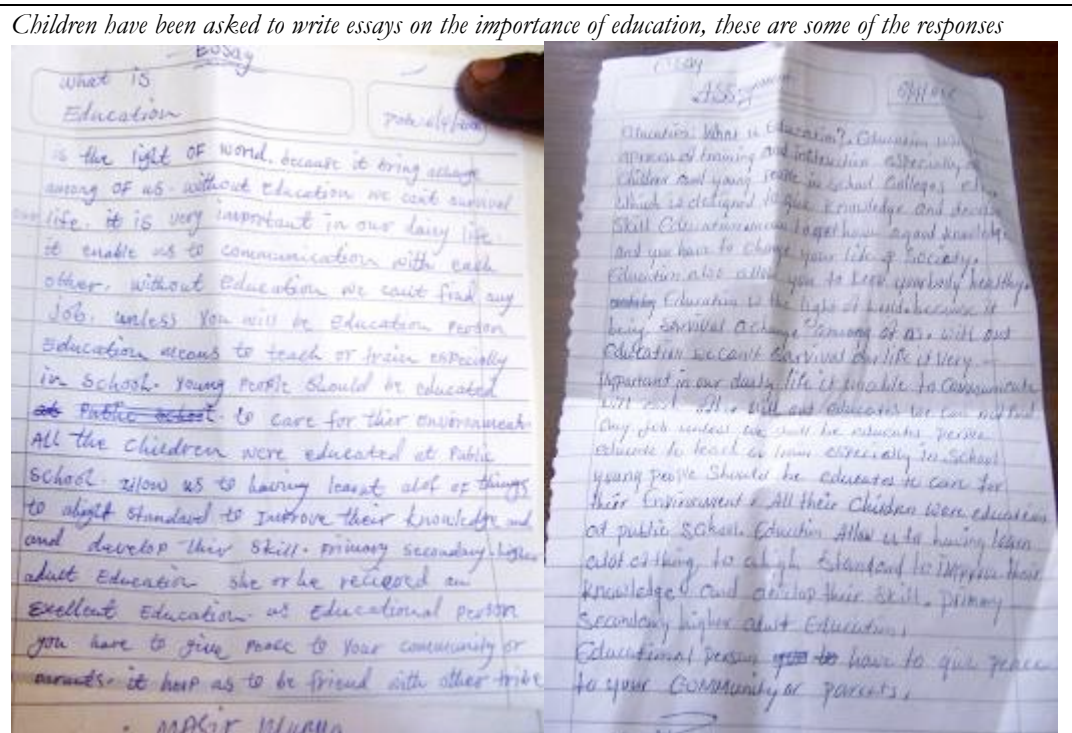 Children have been asked to write essays on the importance of education, these are some of the responses
Essay
What is
Education
is the light OF world. because it bring
among OF us. without Education we can't survival
life. it is very important in our daily life.
it enable us to communication with each
other. without Education we can't find any
Job. unless You will be Education Person
Education means to teach or train especially
in School. Young People Should be educated
to care for thier environment.
All the Children were educated at Public
School. allow us to having learnt alot of things
to standard to Improve their knowledge and
and develop thier Skill. Primary Secondary higher
adult Education she or he recieved an
Exellent Education. as Educational Person
you have to give Peace to Your community or
Parents. it help us to be friend with other tribe
Essay
ASSignment
Education: What is Education?. Education
process of training and instruction especially
Children and young People in School Colleges etc.
which is designed to give knowledge and develop
Skill Education to get have a good knowledge
and you have to change your life of Society.
Education also allow you to keep your body healthy.
Education is the light of because it
being Survival a change among of us. with out
education we can't Survival our life it very
Important in our daily life it unable to Communicate
with out educates we can not find
any job unless we educates
educate to teach or learn especially in School
young people Should be educates to care for
their Environment. All their Children were education
at public School. Education Allow us to having learn
alot of thing to a high Standard to improve their
knowledge and develop their Skill. primary
Secondary higher adult Education,
Educational person have to give peace
to your Community or parents.